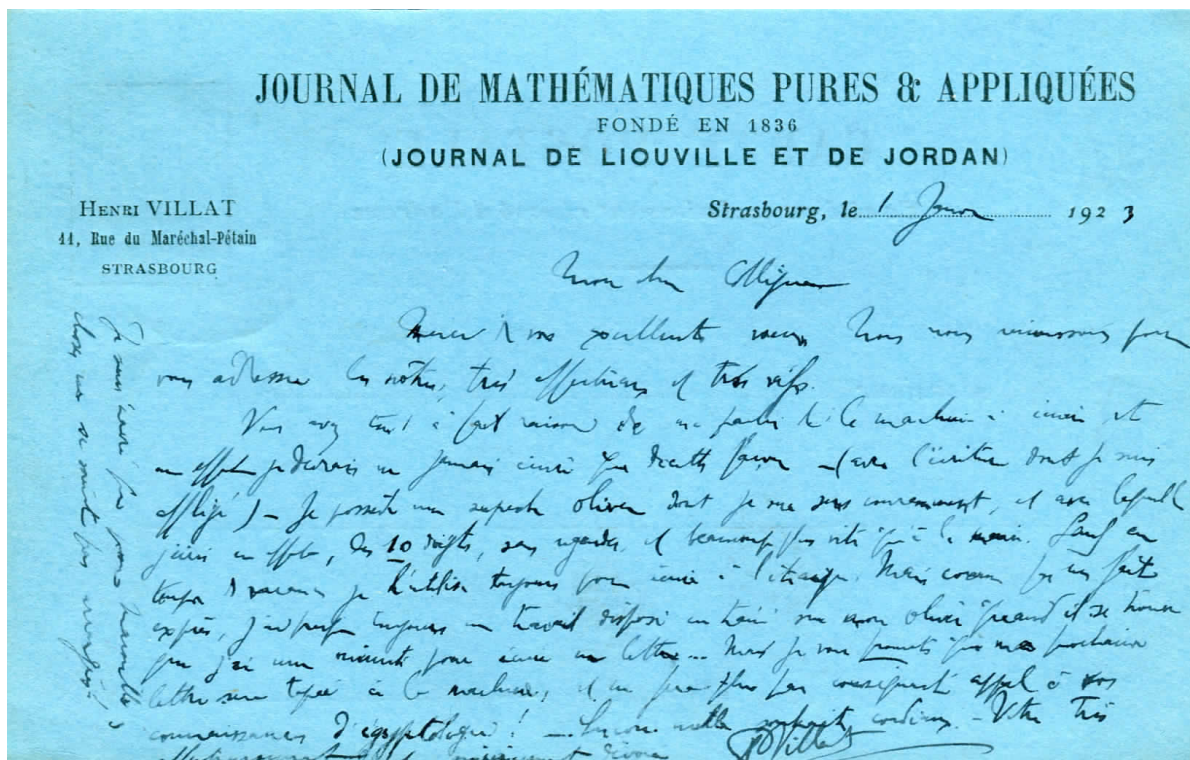 JOURNAL DE MATHÉMATIQUES PURES & APPLIQUÉES
FONDÉ EN 1836
(JOURNAL DE LIOUVILLE ET DE JORDAN)
HENRI VILLAT
11, Rue du Maréchal-Pétain
STRASBOURG
Strasbourg, le 1 1923
Mon cher
Merci de vos excellents vœux. Nous nous réunissons pour
vous adresser les nôtres, très affectueux et très vifs.
Vous avez tout à fait raison de me parler de la machine à écrire et
en effet je devrais ne jamais écrire que de cette façon – (avec l'écriture dont je suis
affligé) – Je possède une superbe oliver dont je me sers couramment, et avec laquelle
j'écris en effet, des 10 doigts, sans regarder, et beaucoup plus vite qu'à la main. Sauf en
temps de vacances je l'utilise toujours pour écrire à Mais comme par un fait
exprès, j'ai presque toujours un travail disposé en train sur mon oliver quand il se trouve
que j'ai une minute pour écrire une lettre... Mais je vous promets que ma prochaine
lettre sera tapée à la machine, et ne fera plus par conséquent appel à vos
connaissances d'égyptologie! – Encore mille souhaits cordiaux. – Votre très
dévoué
HVillat